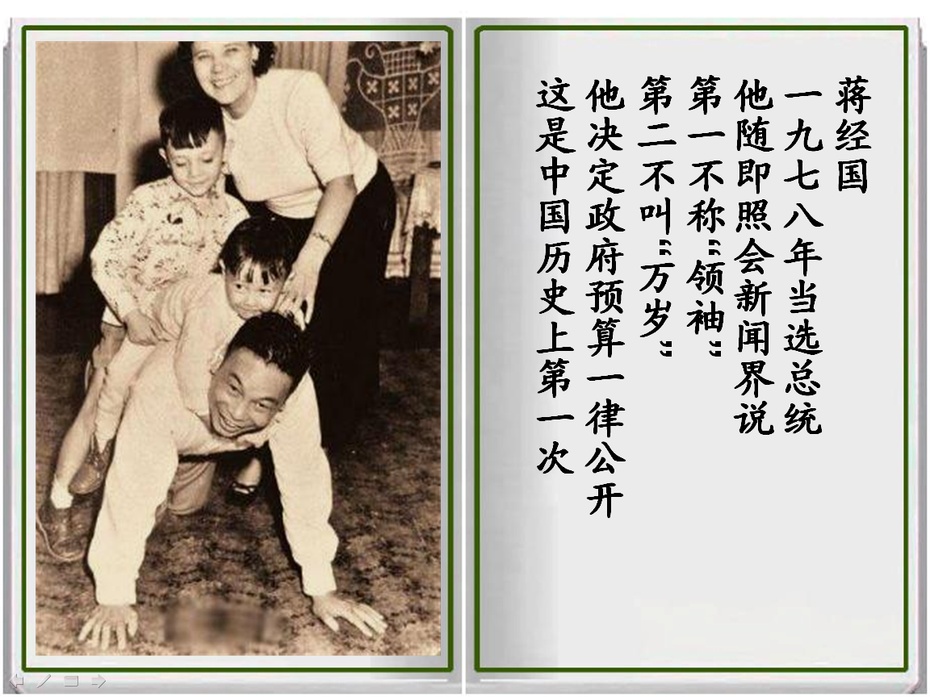 蒋经国
一九七八年当选总统
他随即照会新闻界说
第一不称“领袖”
第二不叫“万岁”
他决定政府预算一律公开
这是中国历史上第一次